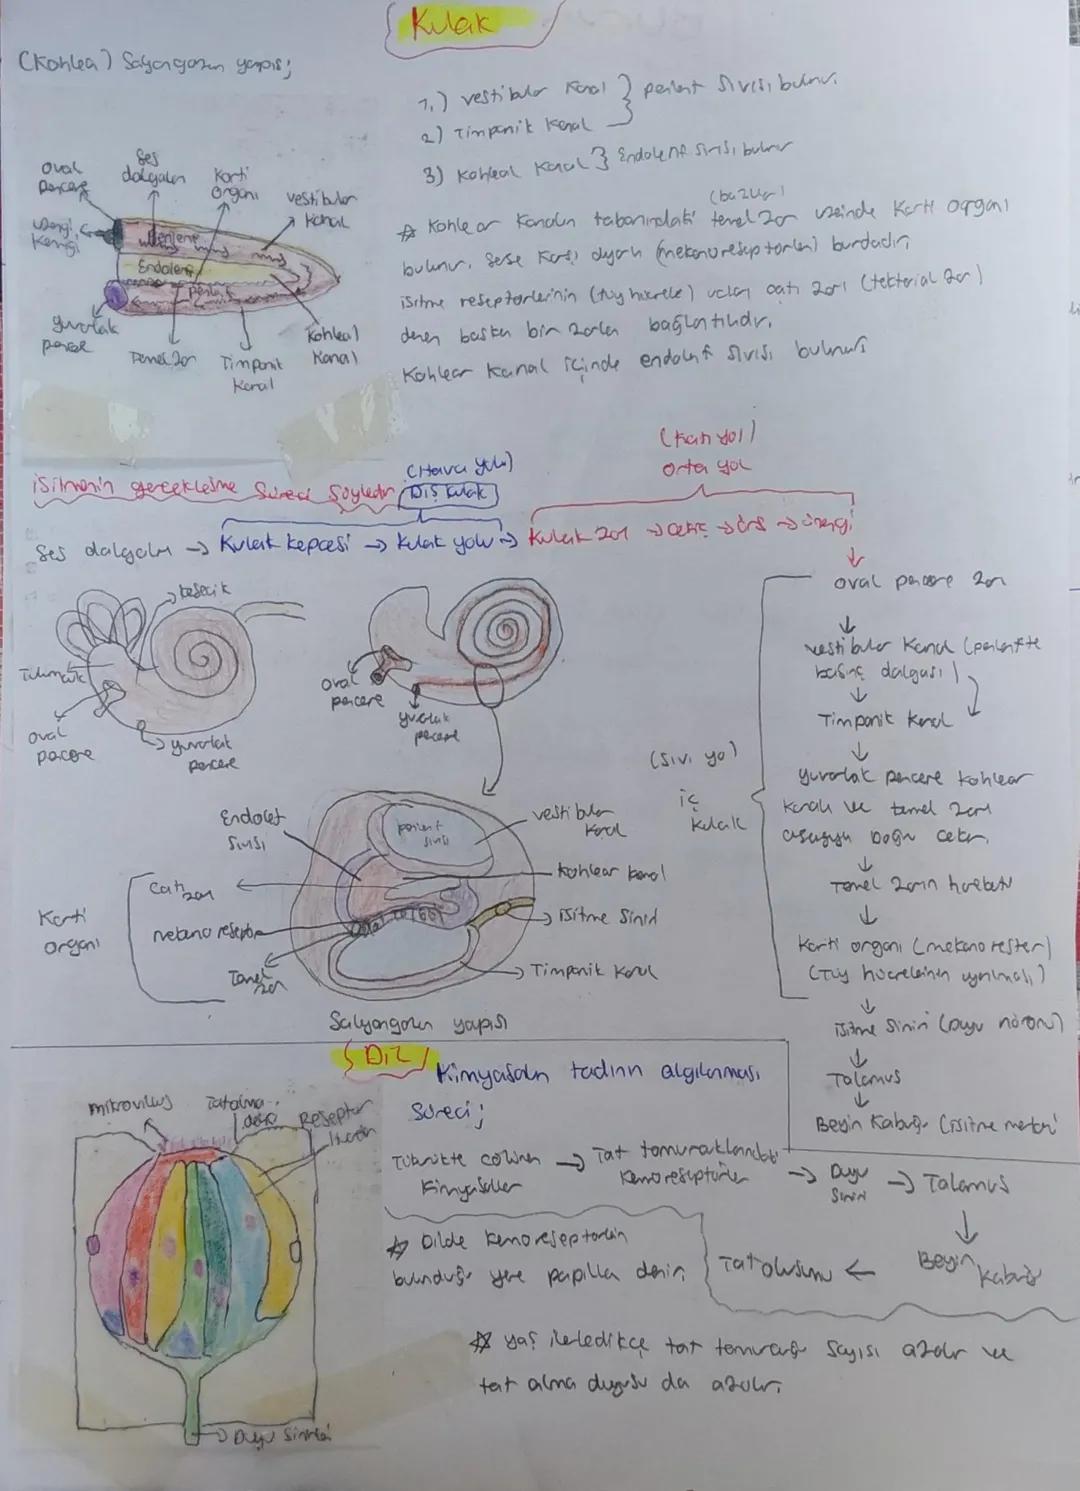 Kulak
(Kohlea) Salyangozun yapısı;
1.) vestibular Kanal } perilenf sıvısı bulunur.
2) Timpanik Kanal
3) Kohleal Kanal } Endolenf sıvısı bulunur
Oval pencere
Ses dalgaları
Korti Organı
vestibular Kanal
üzengi Kemiği
Perilenf
Endolenf
Perilenf
yuvarlak pencere
Temel zar
Timpanik Kanal
Kohleal Kanal
(bazilar)
☆ Kohlear Kanalın tabanındaki temel zar üzeinde Korti organı
bulunur. Sese Karşı duyarlı (mekanoreseptorler) burdadır,
işitme reseptorlerinin (tüy hücrele) uçları çatı zarı (tektorial zar)
denen başka bir zarla bağlantılıdır.
Kohlear Kanal içinde endolenf sıvısı bulunur
(Katı yol)
Orta yol
(Hava yolu)
işitmenin gerçekleşme Süreci Şöyledir
Dış kulak
Ses dalgaları → Kulak kepçesi → Kulak yolu → Kulak zarı → çekiç → örs → üzengi
↓
oval pencere zarı
↓
vestibular Kanal (perilenfte
basınç dalgası)
↓
Timpanik Kanal
↓
yuvarlak pencere kohlear
Kanalı ve temel zarı
aşağıya doğru çeker.
↓
Temel zarın hareketi
↓
Korti organı (mekano rester)
(Tüy hücrelerinin uyarılması)
↓
işitme Siniri (duyu nöronu)
↓
Talamus
↓
Beyin Kabuğu (işitme merkezi)
(Sıvı yo)
iç Kulak
kesecik
Tulumcuk
oval pencere
yuvarlak pencere
oval pencere
yuvarlak pencere
Endolenf Sıvısı
perilenf sıvısı
vestibular Kanal
Kohlear kanal
Çatı zarı
işitme Siniri
Korti organı
mekano reseptör
Temel zar
Timpanik Kanal
Salyangozun yapısı
DİL
Kimyasalın tadının algılanması
Süreci;
mikrovilus
Tat alma
Reseptör
Tükrükte çözünen Kimyasallar → Tat tomurcuklarındaki Kemoreseptörler → Duyu Siniri → Talamus
↓
Beyin Kabuğu
Tat oluşumu ←
☆ Dilde kemoreseptörlerin
bulunduğu yere papilla denir,
☆ yaş ilerledikçe tat tomurcuğu Sayısı azalır ve
tat alma duygusu da azalır.
Duyu Sinirleri